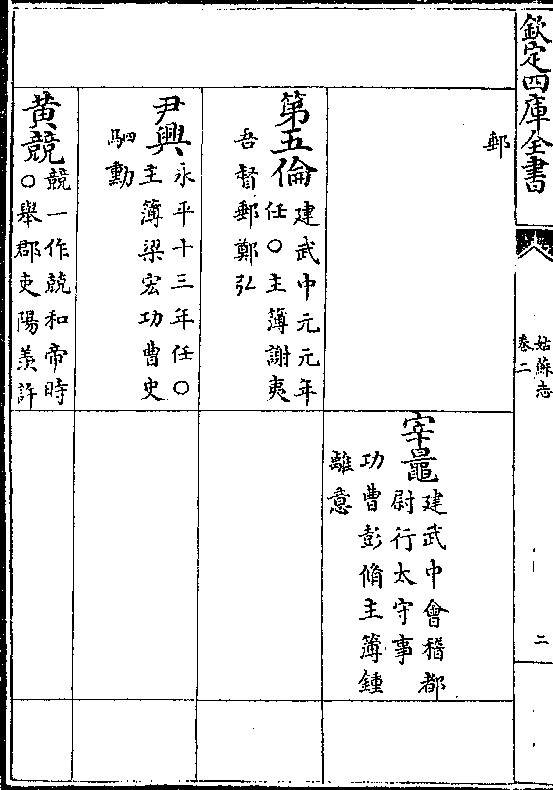 欽定四庫全書
姑蘇志
卷二
二
郵
宰鼂
建武中會稽都
尉行太守事
功曹彭脩主簿鍾
離意
第五倫
建武中元元年
任○主簿謝夷
吾督郵鄭弘
尹興
永平十三年任○
主簿梁宏功曹史
駟勳
黄競
競一作兢和帝時
○舉郡吏陽羨許